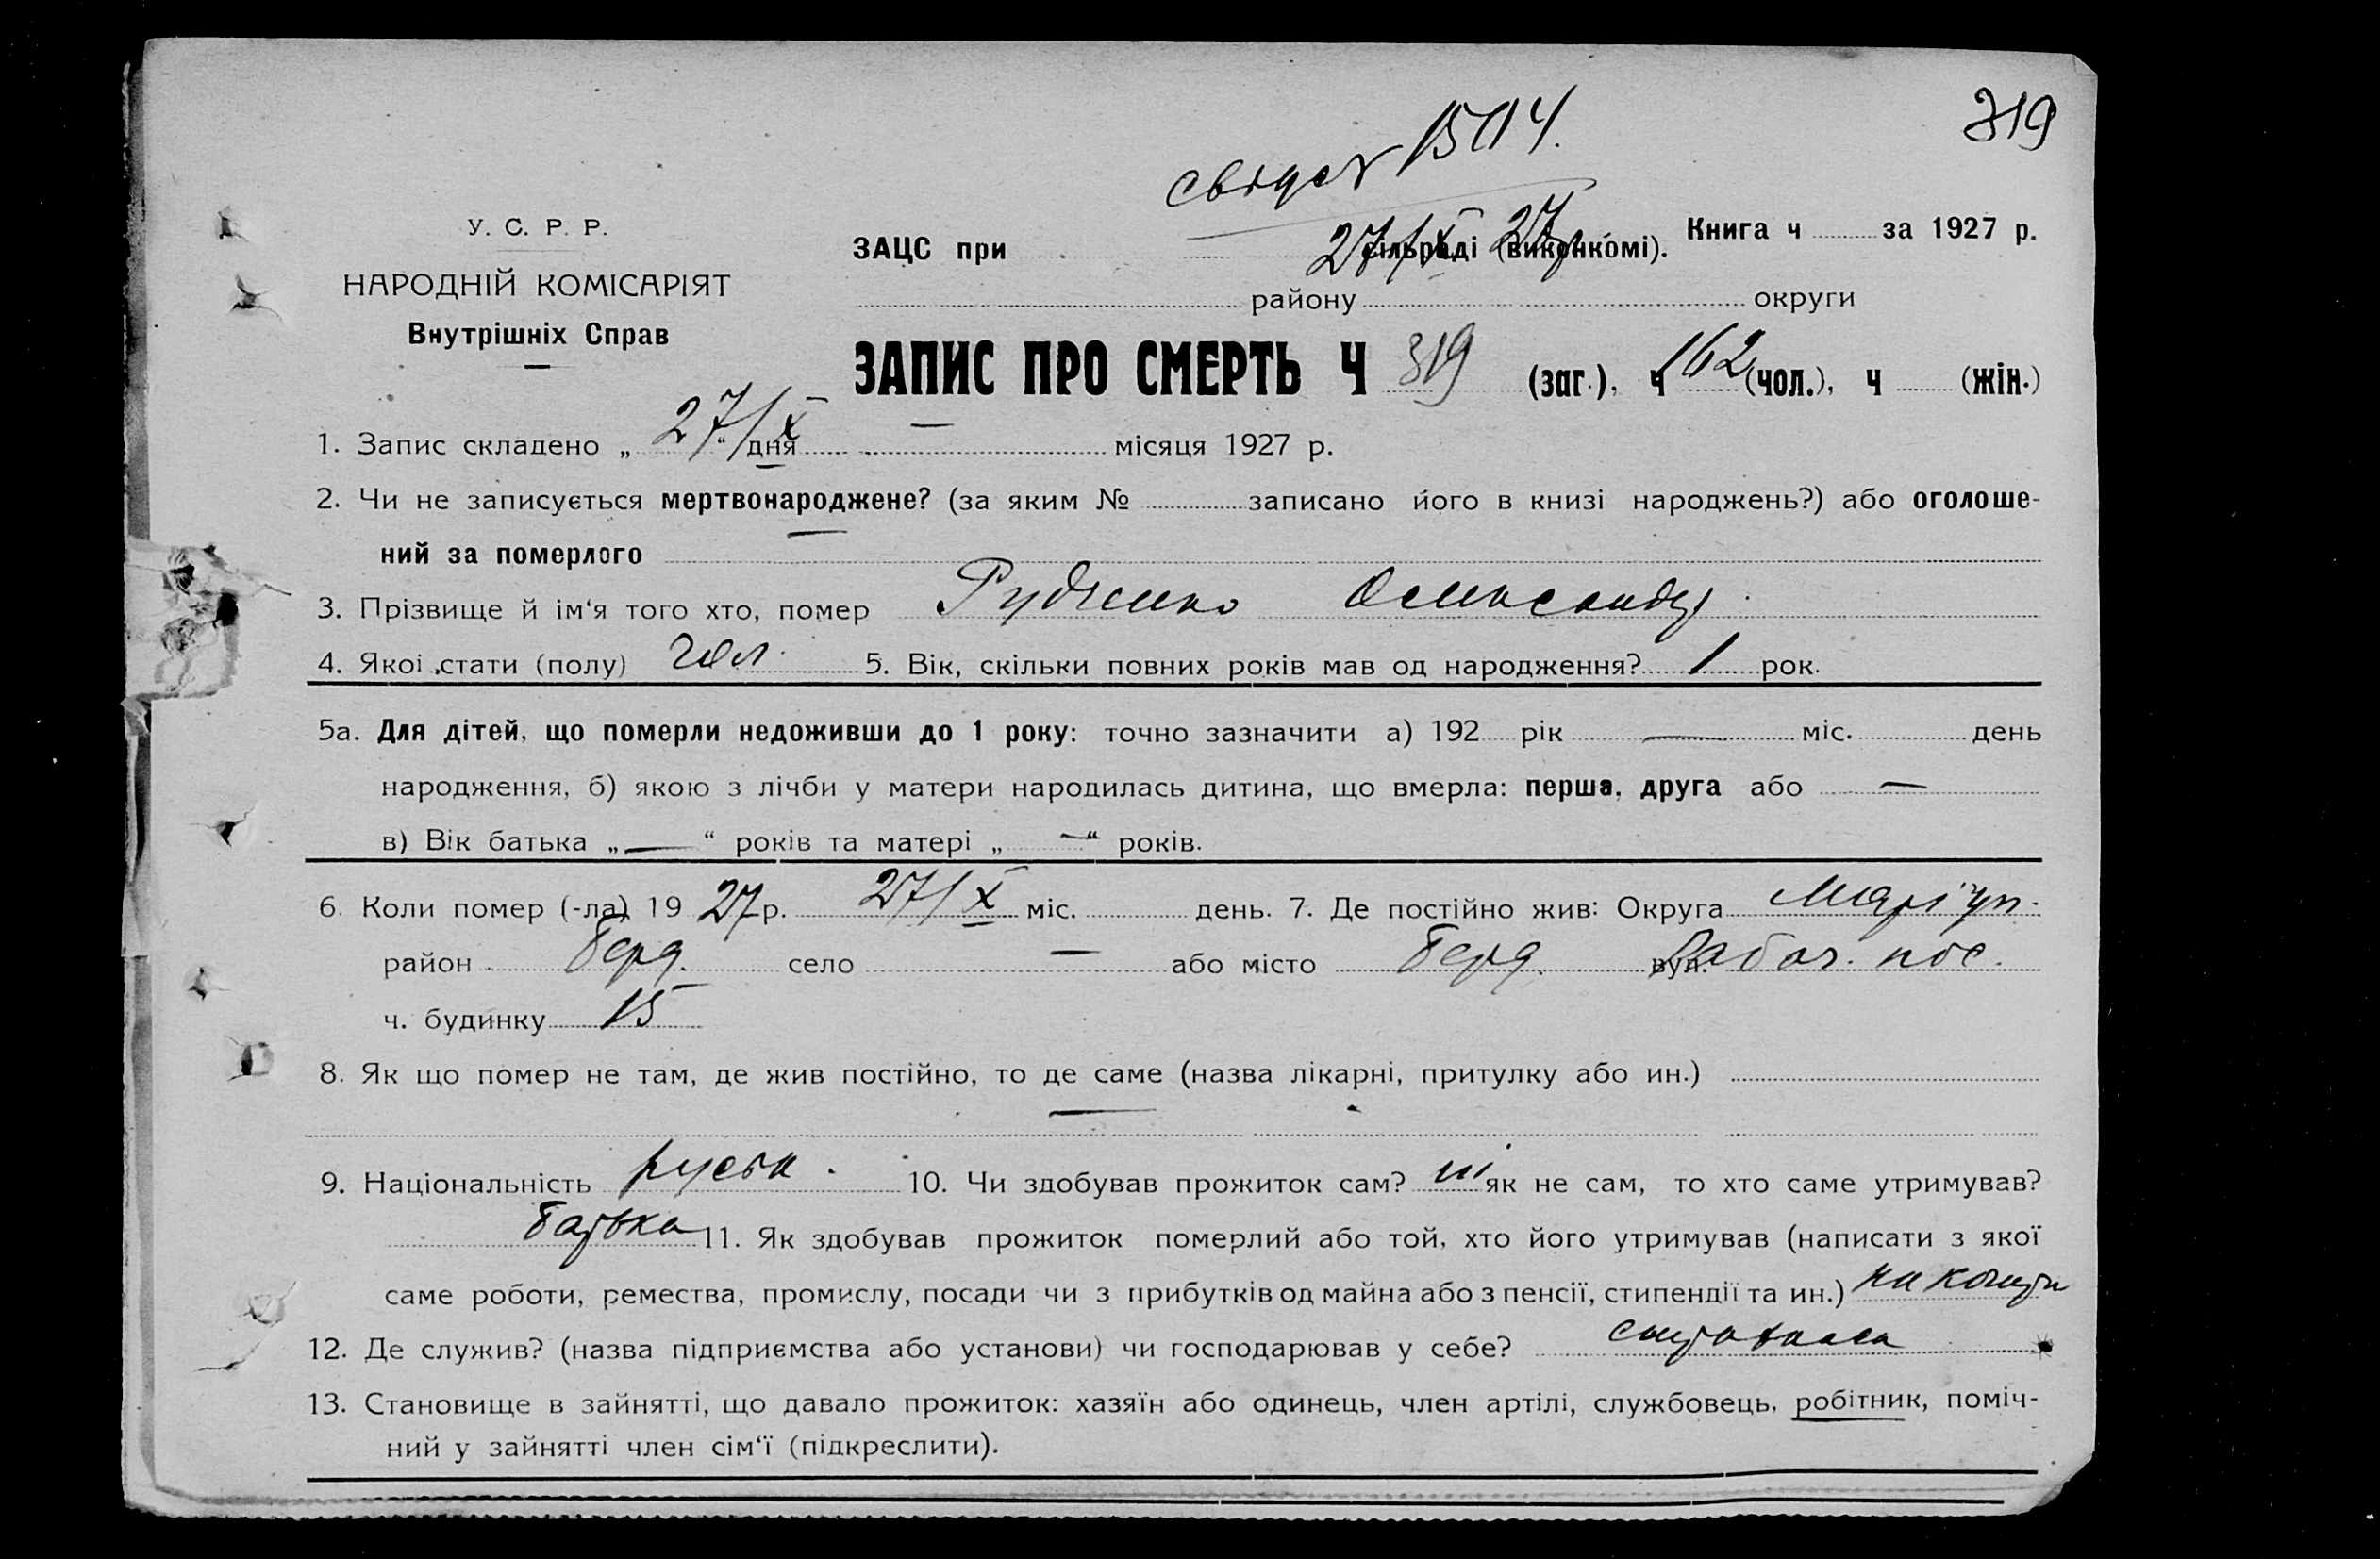 319
свідот 1504.
27/X 27р.
У. С. Р. Р.
НАРОДНІЙ КОМІСАРІЯТ
Внутрішніх Справ
ЗАЦС при сільраді (виконкомі). Книга ч за 1927 р.
району округи
ЗАПИС ПРО СМЕРТЬ Ч 319 (заг.), ч 162 (чол.), ч (жін.)
1. Запис складено „ 27/X “ дня — місяця 1927 р.
2. Чи не записується мертвонароджене? (за яким № записано його в книзі народжень?) або оголоше-
ний за померлого —
3. Прізвище й ім‘я того хто, помер Олександр
4. Якої стати (полу) чол. 5. Вік, скільки повних років мав од народження? 1 рок.
5а. Для дітей, що померли недоживши до 1 року: точно зазначити а) 192 рік — міс. день
народження, б) якою з лічби у матери народилась дитина, що вмерла: перша, друга або —
в) Вік батька „ — “ років та матері „ — “ років.
6. Коли помер (-ла) 19 27 р. 27/X міс. день. 7. Де постійно жив: Округа Маріуп.
район Берд. село — або місто Берд. вул. Рабоч. пос.
ч. будинку 15
8. Як що помер не там, де жив постійно, то де саме (назва лікарні, притулку або ин.)
—
9. Національність руськ. 10. Чи здобував прожиток сам? ні як не сам, то хто саме утримував?
батько 11. Як здобував прожиток померлий або той, хто його утримував (написати з якої
саме роботи, ремества, промислу, посади чи з прибутків од майна або з пенсії, стипендії та ин.) на кошти
12. Де служив? (назва підприємства або установи) чи господарював у себе? страхкаси
13. Становище в зайнятті, що давало прожиток: хазяїн або одинець, член артілі, службовець, робітник, поміч-
ний у зайнятті член сім‘ї (підкреслити).